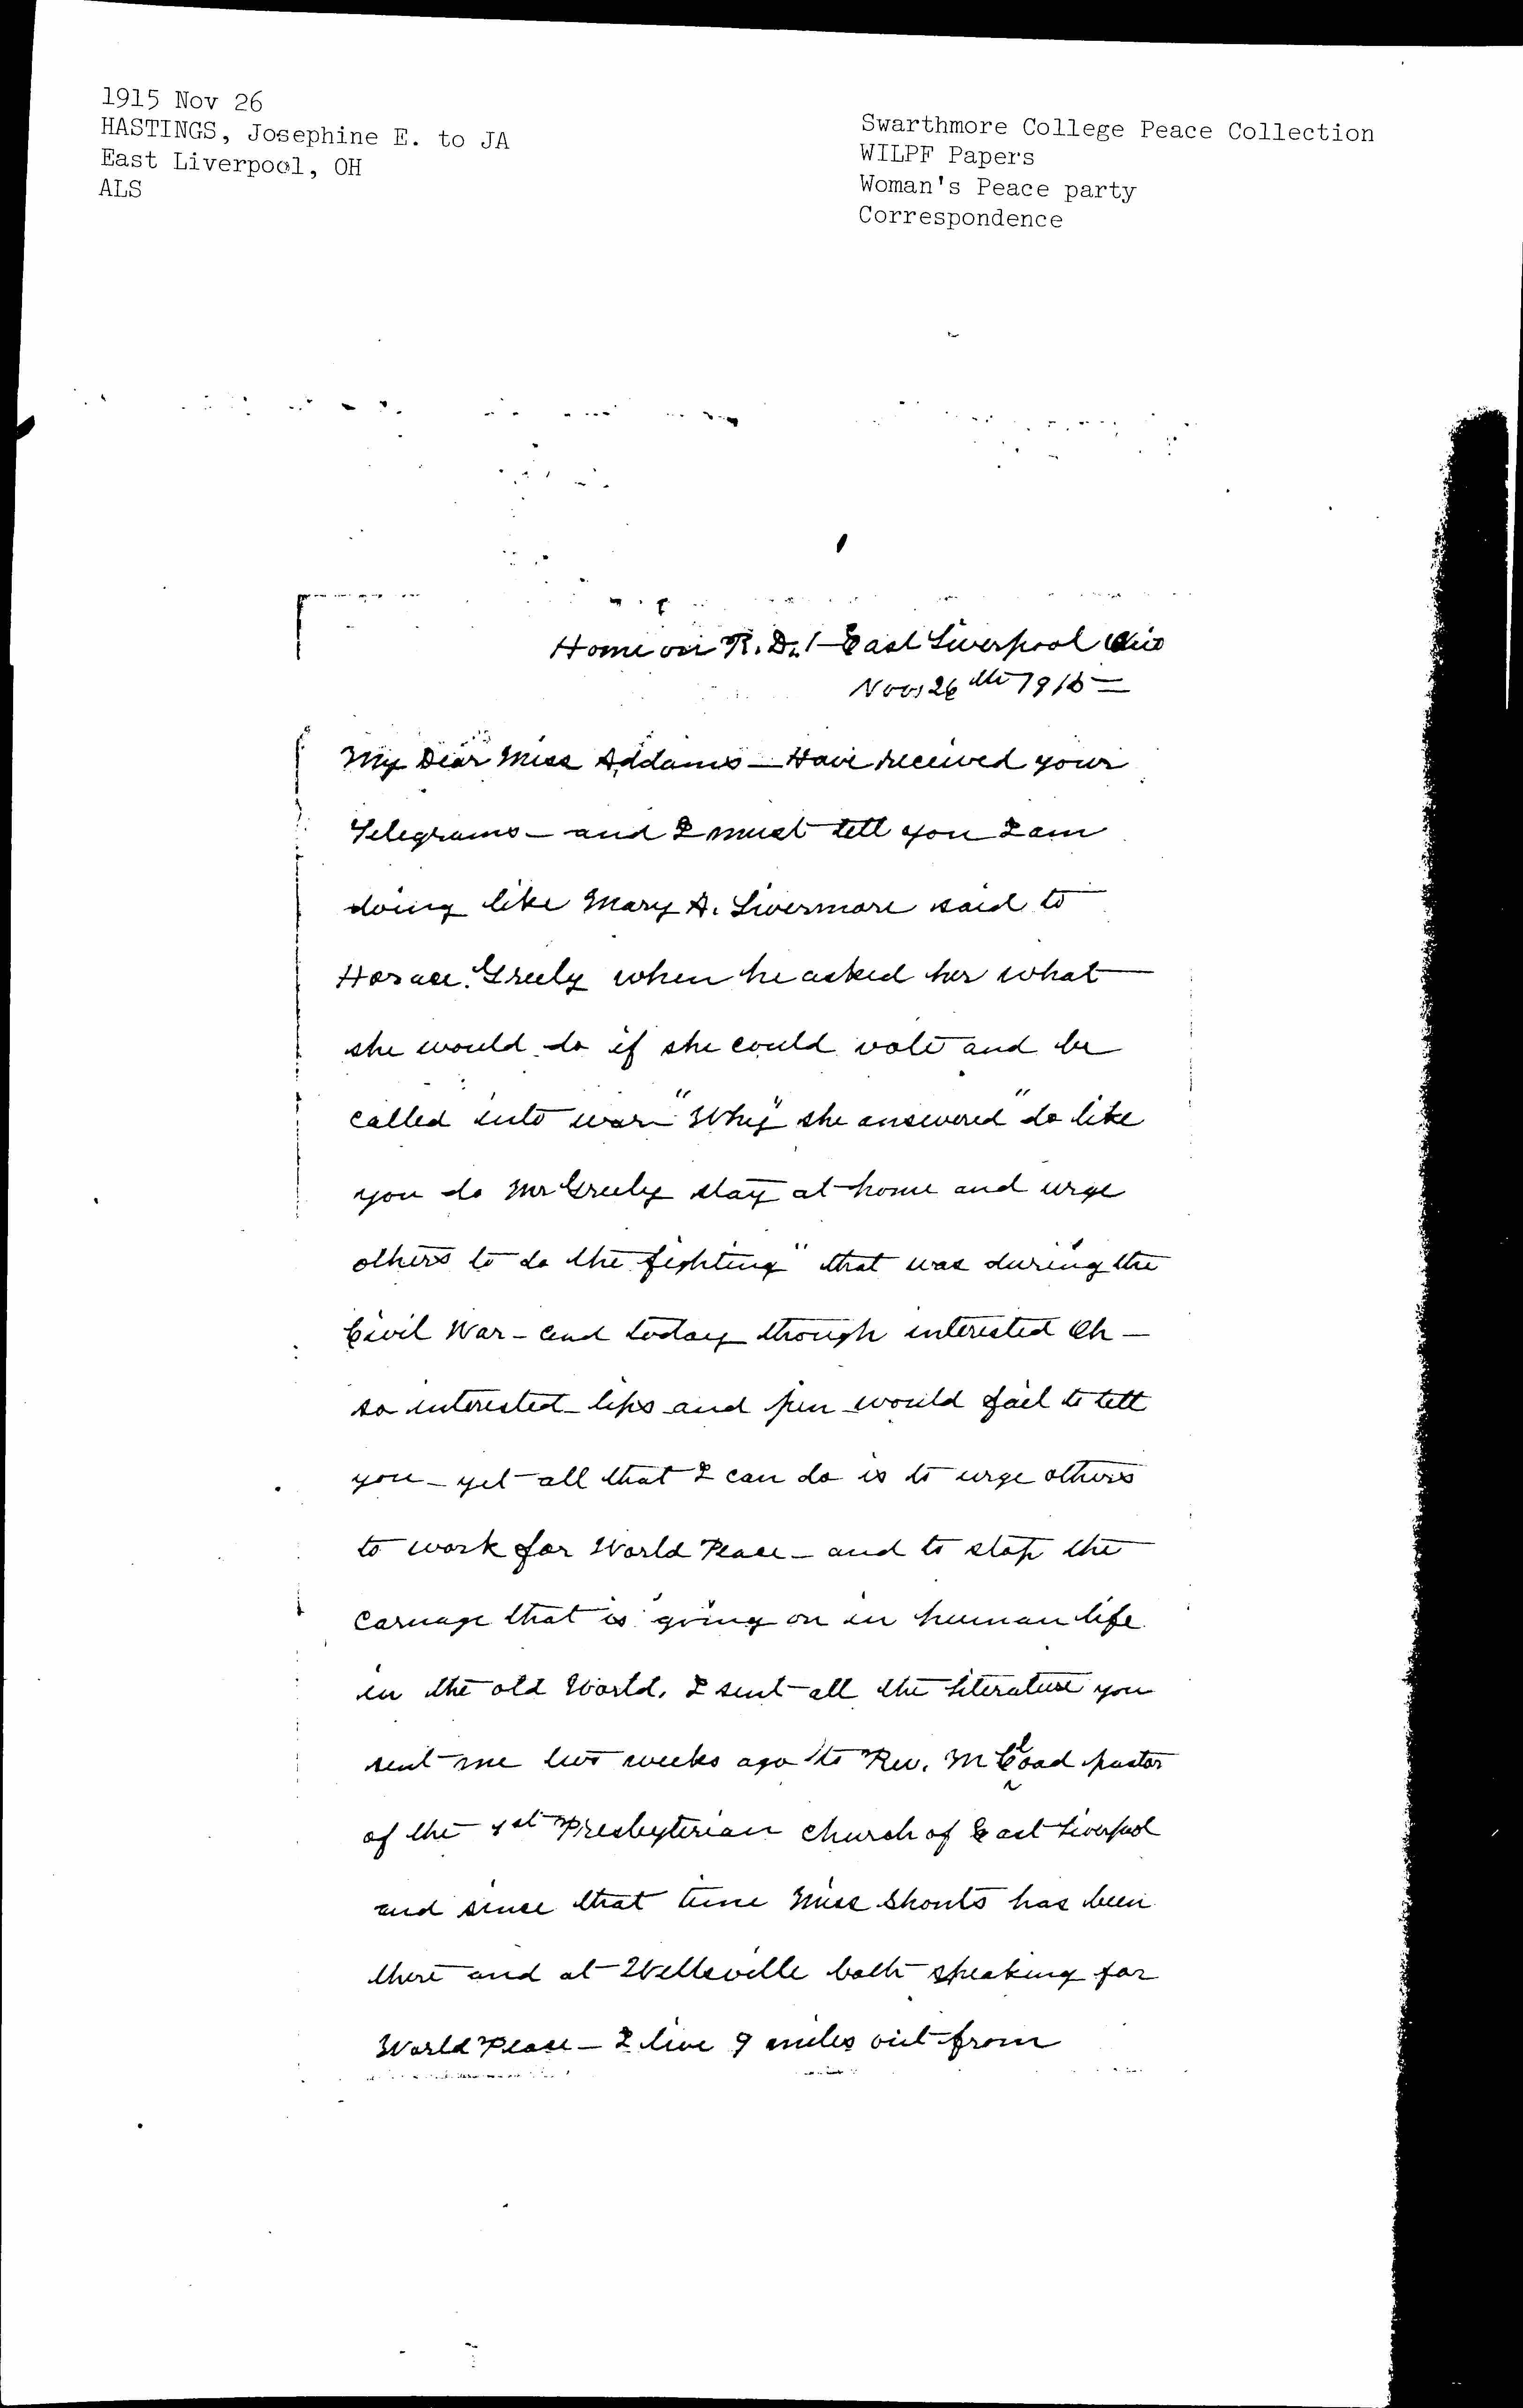 1915 Nov 26
HASTINGS, Josephine E. to JA
East Liverpool, OH
ALS
Swarthmore College Peace Collection
WILPF Papers
Woman's Peace party
Correspondence
Home on R. D. 1 — East Liverpool Ohio
Nov 26th 1915 —
My Dear Miss Addams — Have received your
Telegrams — and I must tell you I am
doing like Mary A. Livermore said to
Horace Greely when he asked her what
she would do if she could vote and be
called into war "Why" she answered "do like
you do Mr Greely stay at home and urge
others to do the fighting" that was during the
Civil War — and today though interested Oh —
so interested — lips and pen would fail to tell
you — yet all that I can do is to urge others
to work for World Peace — and to stop the
carnage that is going on in human life
in the old World. I sent all the literature you
sent me two weeks ago to Rev. McCload pastor
of the 1st Presbyterian church of East Liverpool
and since that time Miss Shonts has been
there and at Wellsville both speaking for
World Peace — I live 9 miles out from